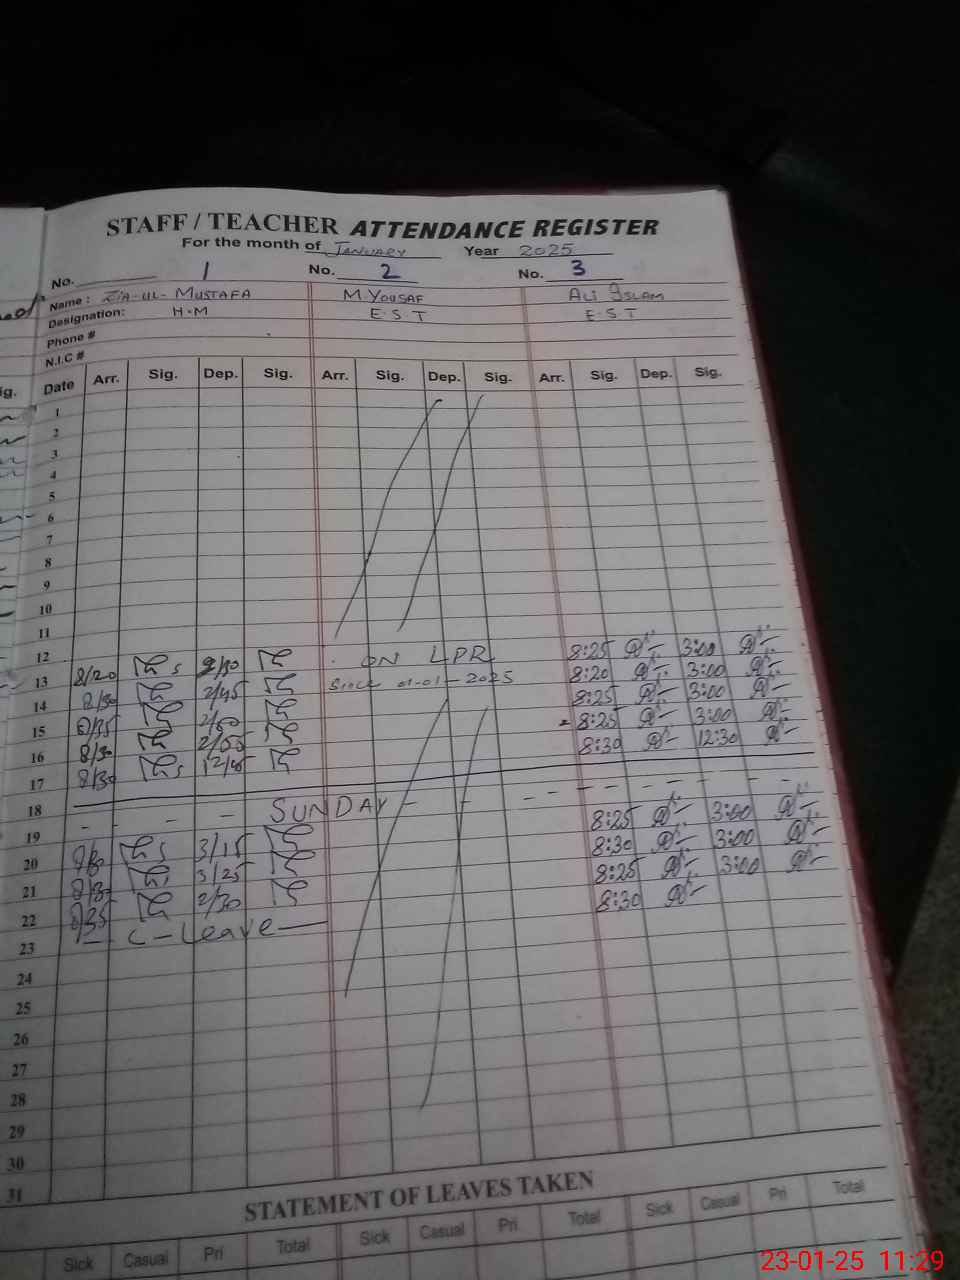 STAFF / TEACHER ATTENDANCE REGISTER
For the month of January Year 2025
No. 1 No. 2 No. 3
Name : Zia-ul-Mustafa M. Yousaf Ali Islam
Designation: H.M E.S.T E.S.T
Phone #
N.I.C #
Date Arr. Sig. Dep. Sig. Arr. Sig. Dep. Sig. Arr. Sig. Dep. Sig.
1
2
3
4
5
6
7
8
9
10
11
12
13 8/20 2/30 ON LPR 8:25 3:00
14 8/30 2/45 Since 01-01-2025 8:20 3:00
15 8/35 2/50 8:25 3:00
16 8/30 2/55 8:25 3:00
17 8/30 8:30 12:30
18
19 - - - SUNDAY - - - - - - - - -
20 3/15 8:25 3:00
21 3/25 8:30 3:00
22 8/35 2/30 8:25 3:00
23 - C-Leave - 8:30
24
25
26
27
28
29
30
31
STATEMENT OF LEAVES TAKEN
Sick Casual Pri Total Sick Casual Pri Total Sick Casual Pri Total
23-01-25 11:29